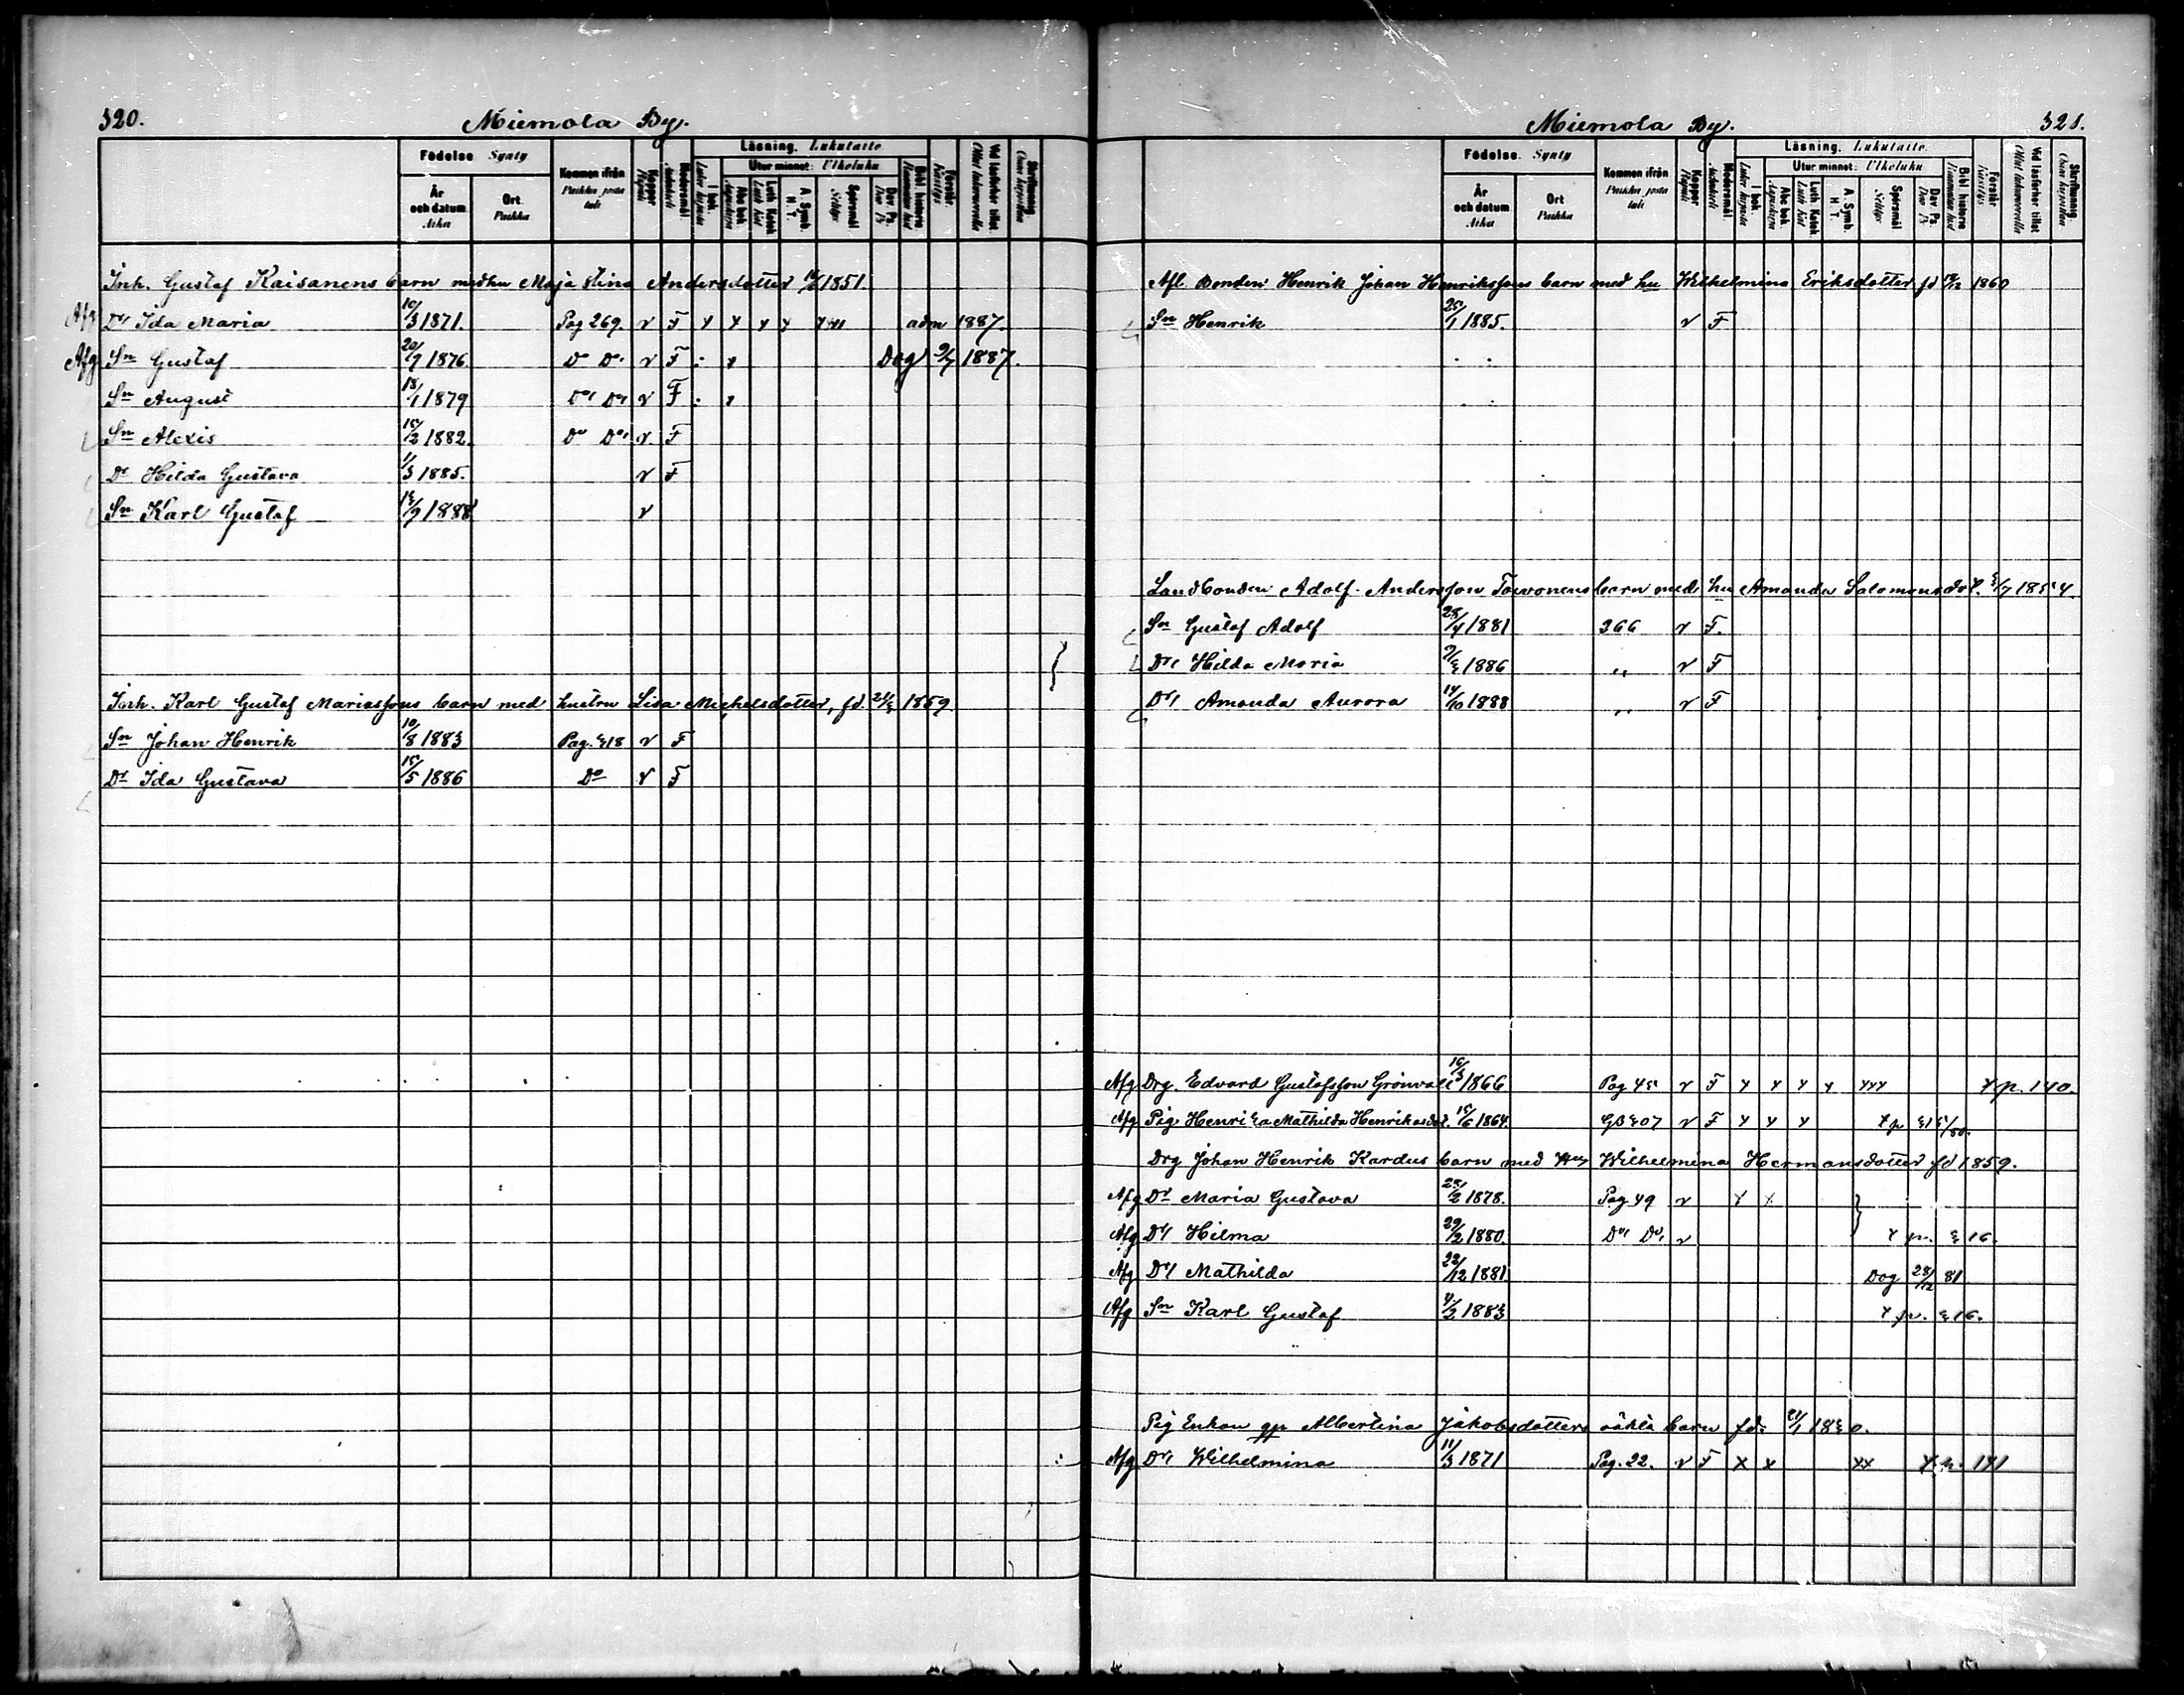 320.
Miemola By.
Födelse. Synty
År och datum Aika
Ort Paikka
Kommen ifrån Paikka josta tuli
Koppor Rupuli
Modersmål
Läsning. Lukutaito
I bok.
Utur minnet: Ulkoluku
Abc bok.
Luth. Katek.
A. Symb. H. T.
Spörsmål
Dav. Ps.
Bibl. historie
Förstår
Vid läsförhör tillst.
Skriftunning
Inh. Gustaf Kaisanens barn med hu Maja Stina Andersdotter 1851
Afg Dr Ida Maria 10/3 1871. Pag 269. v F x x x x xxx adm 1887.
Afg Sn Gustaf 20/7 1876. Do Do v F Dog 9/7 1887.
Sn August 18/1 1879 Do Do v F
Sn Alexis 15/2 1882. Do Do v F
Dr Hilda Gustava 1/3 1885. v F
Sn Karl Gustaf 1888 v
Inh. Karl Gustaf Mariassons barn med hustru Lisa Michelsdotter, fd. 1859
Sn Johan Henrik 10/8 1883 Pag. 318 v F
Dr Ida Gustava 15/5 1886 Do v F
Miemola By.
321.
Födelse. Synty
År och datum Aika
Ort Paikka
Kommen ifrån Paikka josta tuli
Koppor Rupuli
Modersmål
Läsning. Lukutaito
I bok.
Utur minnet: Ulkoluku
Abc bok.
Luth. Katek.
A. Symb. H. T.
Spörsmål
Dav. Ps.
Bibl. historie
Förstår
Vid läsförhör tillst.
Skriftunning
Afl. Bonden Henrik Johan Henrikssons barn med hu Wilhelmina Eriksdotter fd 1860
Sn Henrik 25/1 1885. v F
Landbonden Adolf Andersson Toivonens barn med hu Amanda Salomonsdot. 3/7 1854.
Sn Gustaf Adolf 28/4 1881 366 v F.
Dr Hilda Maria 9/3 1886 ,, v F
Dr Amanda Aurora 14/10 1888 ,, v F
Afg Drg. Edvard Gustafsson Grönvall 16/3 1866 Pag 45 v F x x x x xxx x p. 140.
Afg Pig Henrika Mathilda Henriksdot. 15/6 1864. GB 307 v F x x x x p 315/80.
Drg Johan Henrik Kardus barn med Hu Wilhelmina Hermansdotter fd 1859.
Afg Dr Maria Gustava 28/2 1878. Pag 49 v x x
Afg Dr Hilma 29/2 1880. Do Do v x p. 316.
Afg Dr Mathilda 22/12 1881 Dog 28/12 81
Afg Sn Karl Gustaf 4/2 1883 x p. 316.
Pig Enkan gp Albertina Jakobsdotters oäkta barn fd: 1830.
Afg Dr Wilhelmina 11/3 1871 Pag. 22. v F x x xx x p. 141